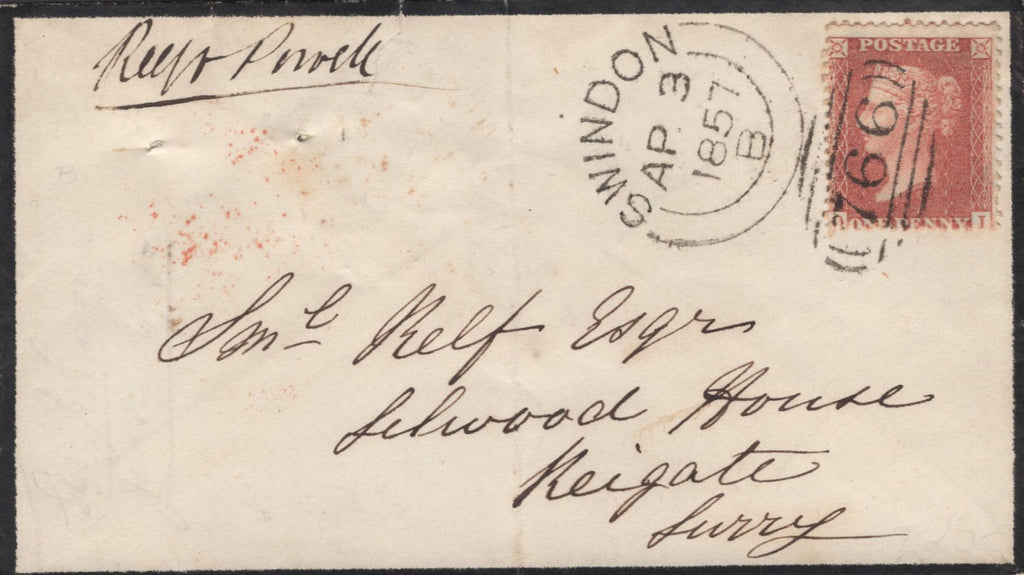 Powell
SWINDON
AP 3
1857
B
POSTAGE
766
ONE PENNY
I
Sml Relf Esqr
Selwood House
Reigate
Surry